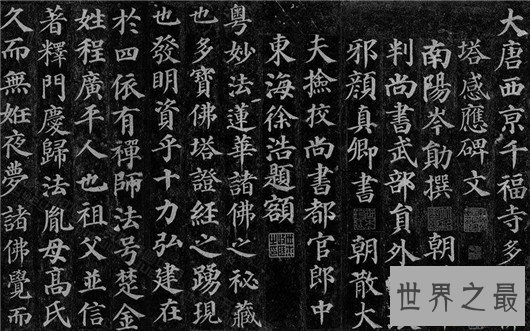 大唐西亰千福寺多
塔感應碑文
南陽岑勛撰 朝
判尚書武部員外
邪顏真卿書 朝散大
夫撿挍尚書都官郎中
東海徐浩題額
粵妙法蓮華諸佛之秘藏
也多寶佛塔證經之踴現
也發明資乎十力弘建在
於四依有禪師法号楚金
姓程廣平人也祖父並信
著釋門慶歸法胤母高氏
久而無姙夜夢諸佛覺而
世界之最